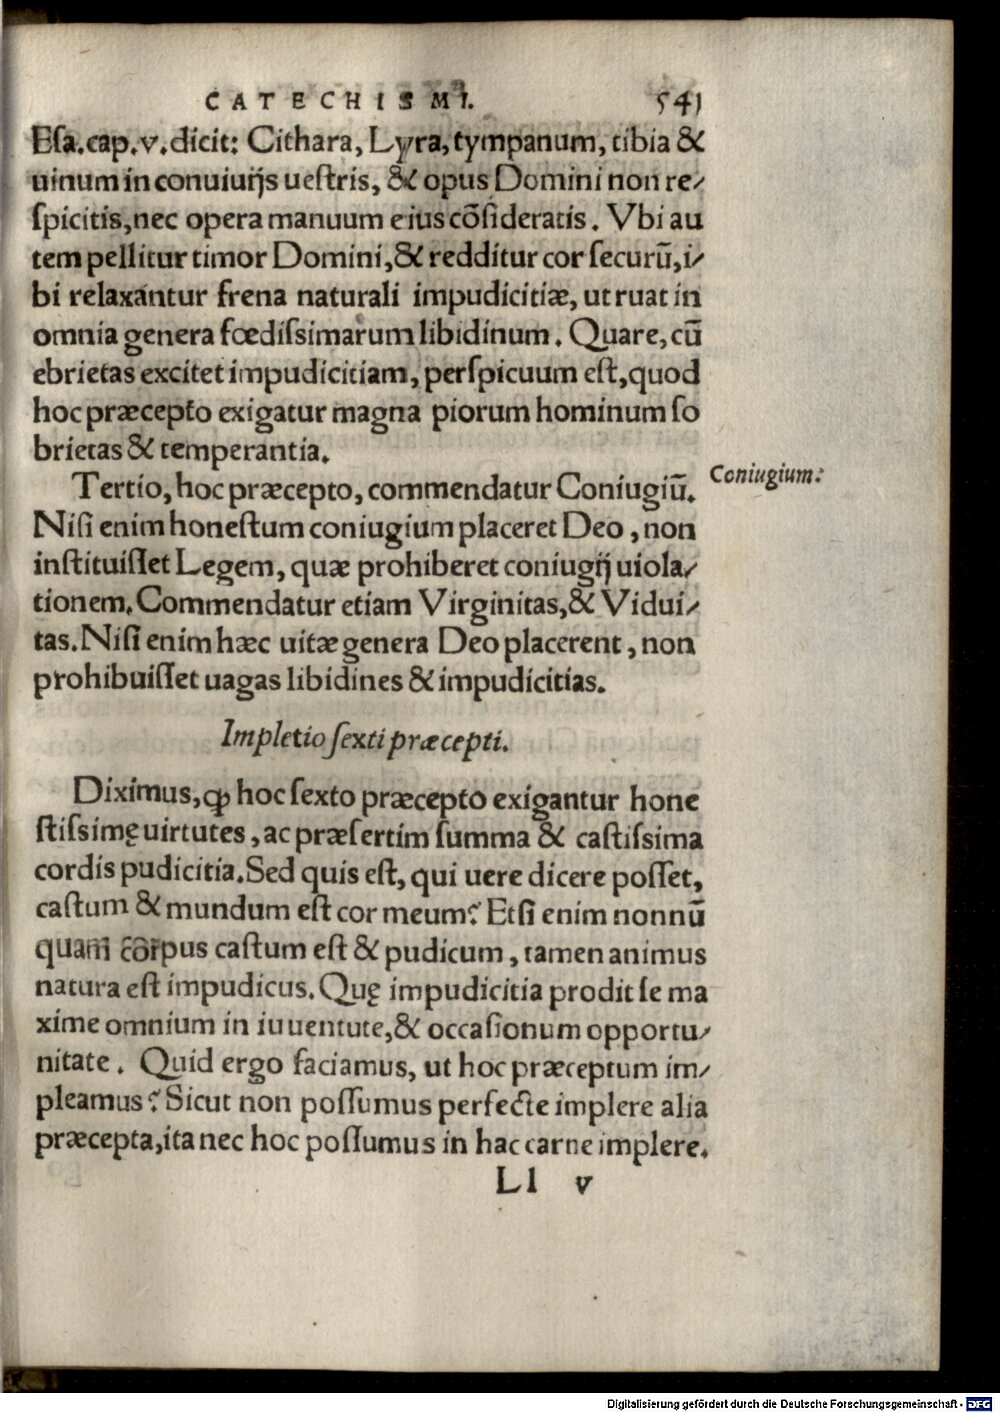 CATECHISMI. 541
Esa.cap.v.dicit: Cithara, Lyra, tympanum, tibia &
uinum in conuiuijs uestris, & opus Domini non re⸗
spicitis, nec opera manuum eius cõsideratis. Vbi au
tem pellitur timor Domini, & redditur cor securũ, i⸗
bi relaxantur frena naturali impudicitiæ, ut ruat in
omnia genera fœdissimarum libidinum. Quare, cũ
ebrietas excitet impudicitiam, perspicuum est, quod
hoc præcepto exigatur magna piorum hominum so
brietas & temperantia.
Tertio, hoc præcepto, commendatur Coniugiũ.
Coniugium:
Nisi enim honestum coniugium placeret Deo, non
instituisset Legem, quæ prohiberet coniugij uiola⸗
tionem. Commendatur etiam Virginitas, & Vidui⸗
tas. Nisi enim hæc uitæ genera Deo placerent, non
prohibuisset uagas libidines & impudicitias.
Impletio sexti præcepti.
Diximus, ꝙ hoc sexto præcepto exigantur hone
stissimę uirtutes, ac præsertim summa & castissima
cordis pudicitia. Sed quis est, qui uere dicere posset,
castum & mundum est cor meum? Etsi enim nonnũ
quam corpus castum est & pudicum, tamen animus
natura est impudicus. Quę impudicitia prodit se ma
xime omnium in iuuentute, & occasionum opportu⸗
nitate. Quid ergo faciamus, ut hoc præceptum im⸗
pleamus? Sicut non possumus perfecte implere alia
præcepta, ita nec hoc possumus in hac carne implere.
Ll v
Digitalisierung gefördert durch die Deutsche Forschungsgemeinschaft - DFG